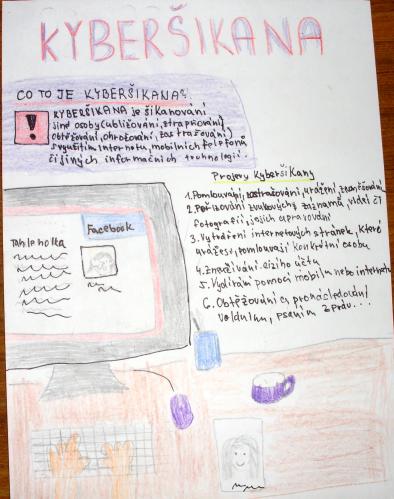 KYBERŠIKANA
CO TO JE KYBERŠIKANA?
! KYBERŠIKANA je šikanování
jiné osoby (ubližování, ztrapňování,
obtěžování, ohrožování, zastrašování)
s využitím internetu, mobilních telefonů
či jiných informačních technologií.
Projevy kyberšikany
1. Pomlouvání, zastrašování, urážení, zesměšňování
2. Pořizování zvukových záznamů, videí či
fotografií, jejich upravování
3. Vytváření internetových stránek, které
urážejí, pomlouvají konkrétní osobu
4. Zneužívání cizího účtu
5. Vydírání pomocí mobilu nebo internetu
6. Obtěžování a pronásledování
voláním, psaním zpráv...
Facebook
Tahle holka